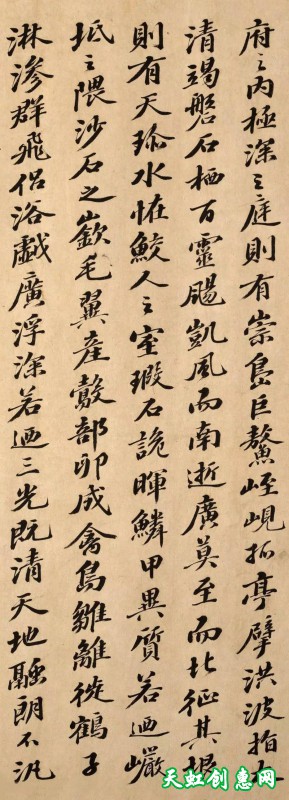 府之內極深之庭則有崇島巨鰲峌峴孤亭擘洪波指太
清竭磐石栖百靈颺凱風而南逝廣莫至而北征其垠
則有天琛水怪鮫人之室瑕石詭暉鱗甲異質若迺巖
坻之隈沙石之嶔毛翼產鷇剖卵成禽鳧雛離褷鶴子
淋滲群飛侶浴戲廣浮深若迺三光既清天地融朗不汎
天虹创意网